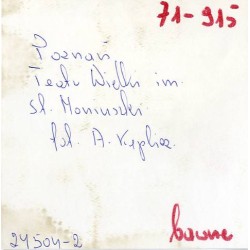 71-915
Poznań
Teatr Wielki im.
st. Moniuszki
fot. A. Keplicz
24504-2